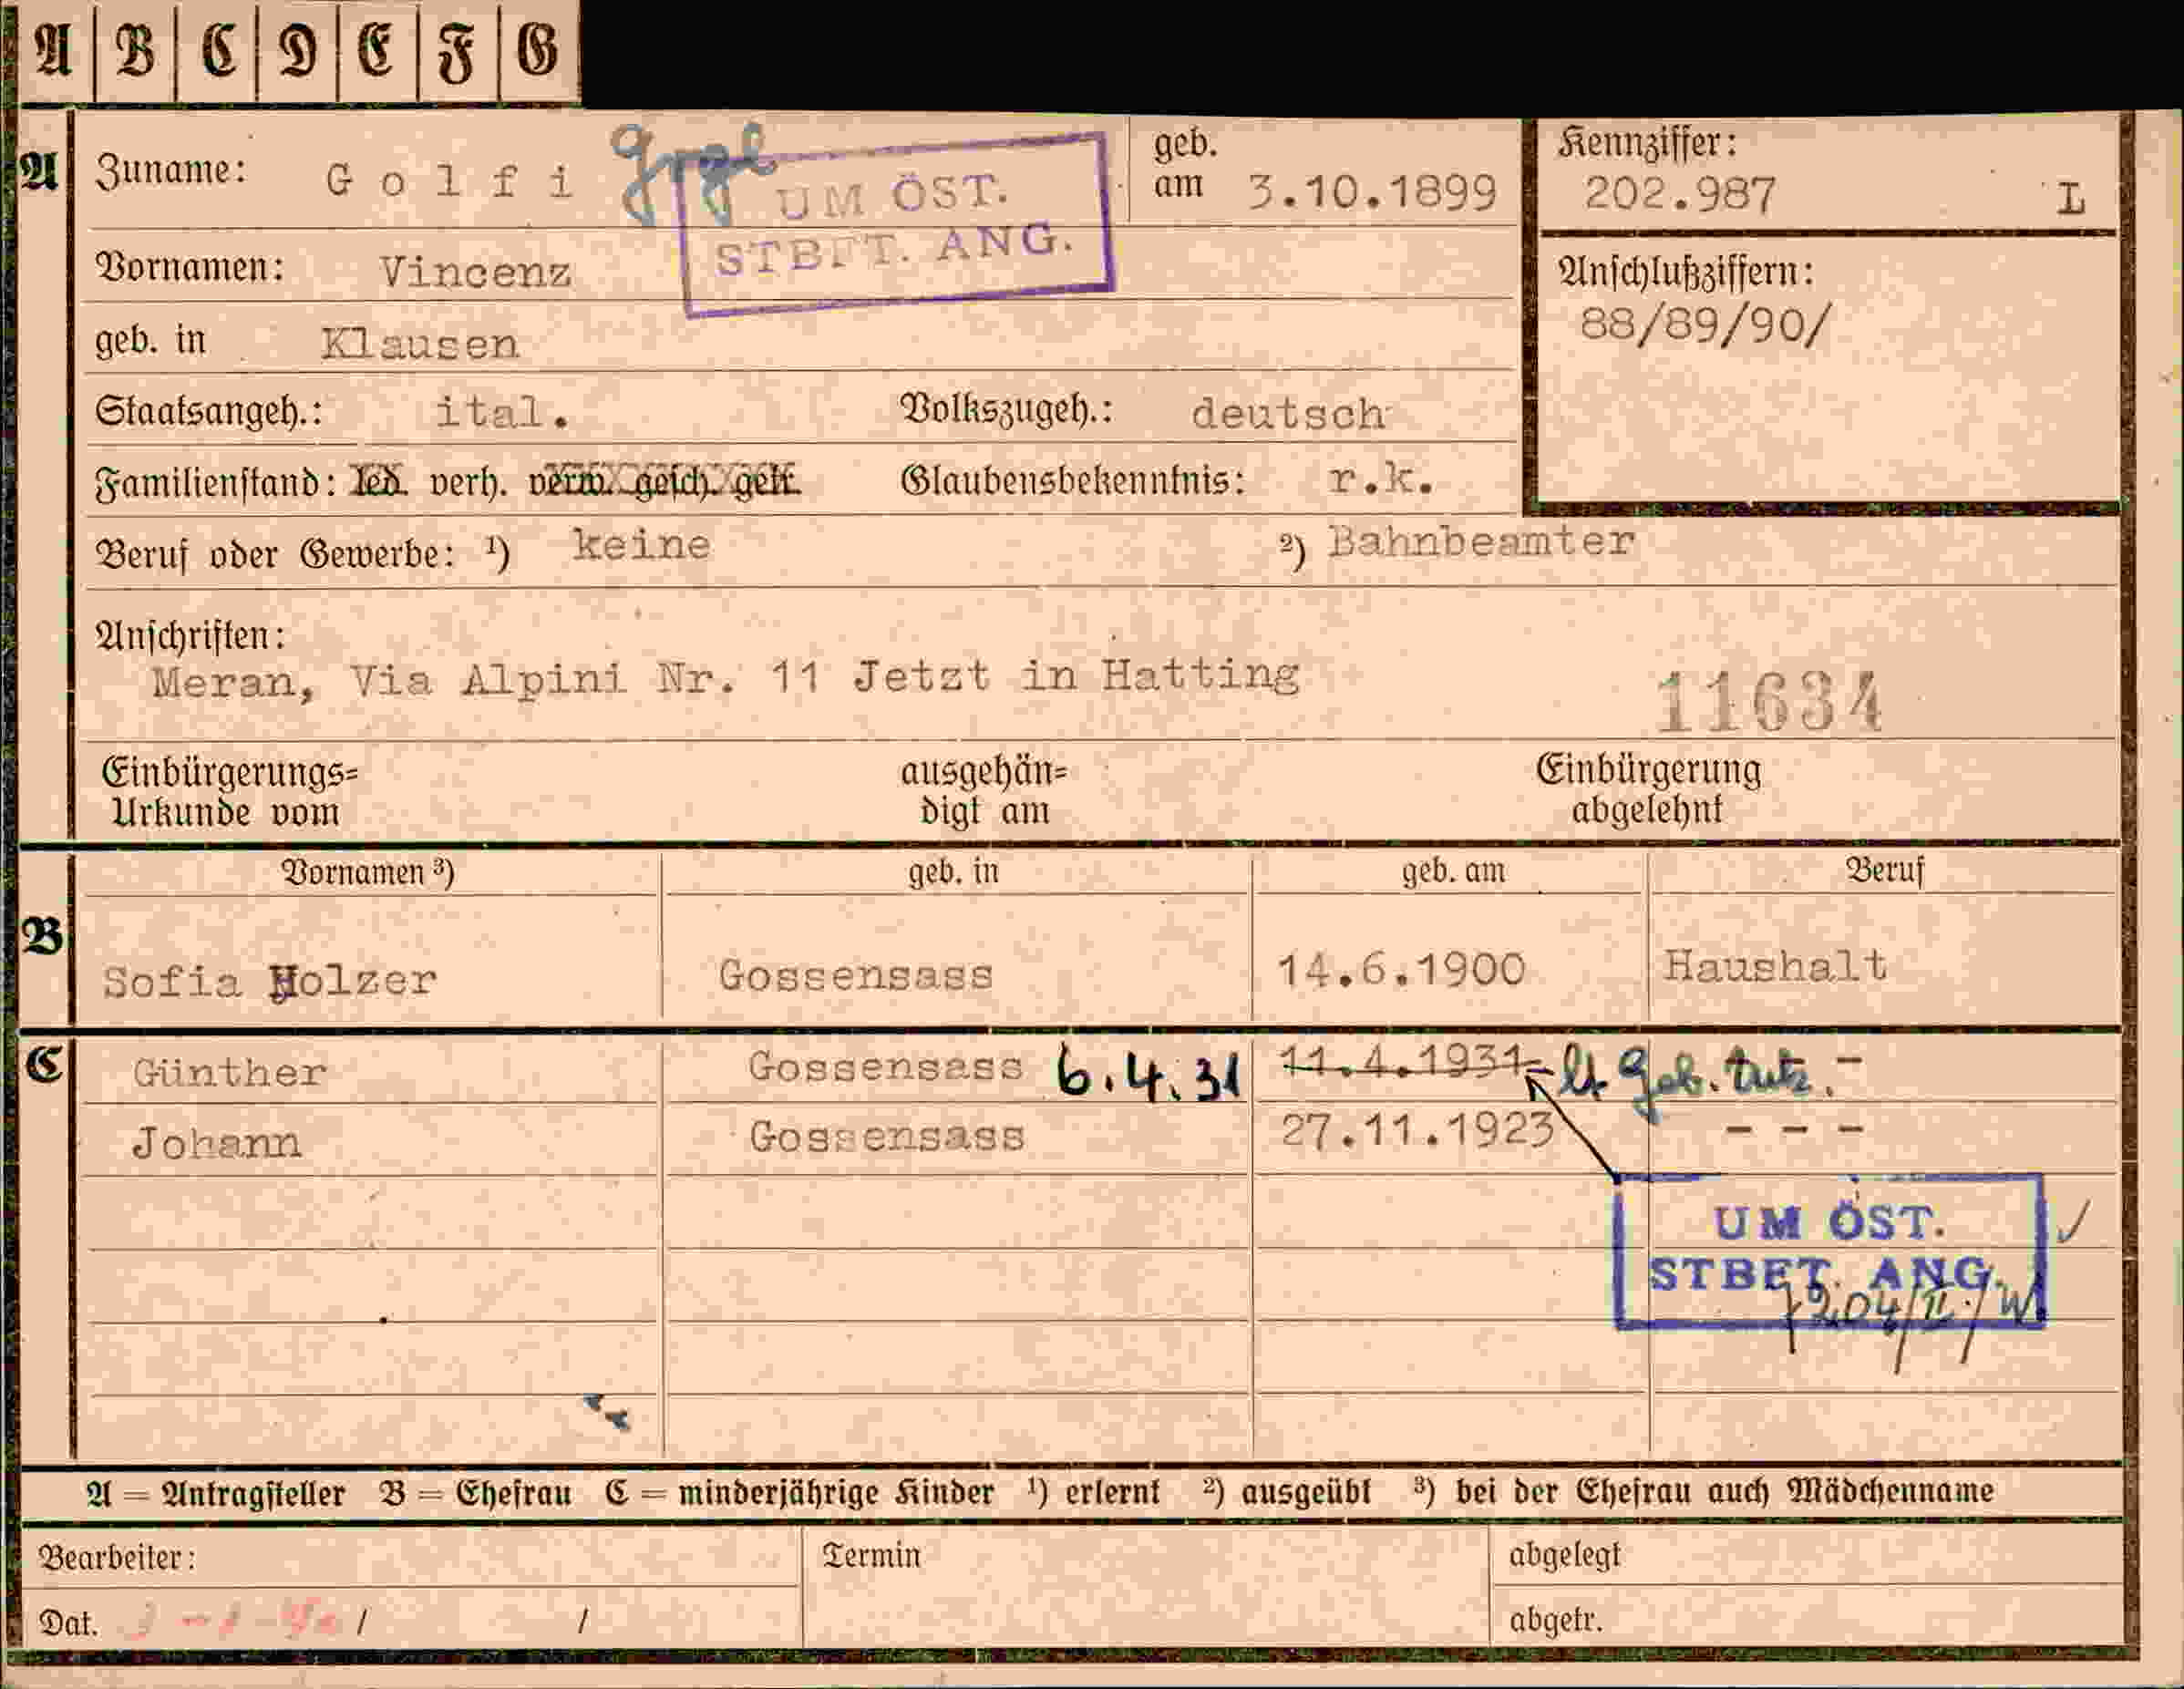 A B C D E F G
A Zuname: Golfi geb. am 3.10.1899 Kennziffer: 202.987 L
UM ÖST.
STBET. ANG.
Vornamen: Vincenz
Anschlußziffern:
88/89/90/
geb. in Klausen
Staatsangeh.: ital. Volkszugeh.: deutsch
Familienstand: led. verh. verw. gesch. getr. Glaubensbekenntnis: r.k.
Beruf oder Gewerbe: ¹) keine ²) Bahnbeamter
Anschriften:
Meran, Via Alpini Nr. 11 Jetzt in Hatting
11634
Einbürgerungs=
Urkunde vom
ausgehän=
digt am
Einbürgerung
abgelehnt
Vornamen ³) geb. in geb. am Beruf
B Sofia Holzer Gossensass 14.6.1900 Haushalt
C Günther Gossensass 6.4.31 11.4.1931 lt Geb. -
Johann Gossensass 27.11.1923 - - -
UM ÖST.
STBET. ANG.
A = Antragsteller B = Ehefrau C = minderjährige Kinder ¹) erlernt ²) ausgeübt ³) bei der Ehefrau auch Mädchenname
Bearbeiter: Termin abgelegt
Dat. / / abgetr.